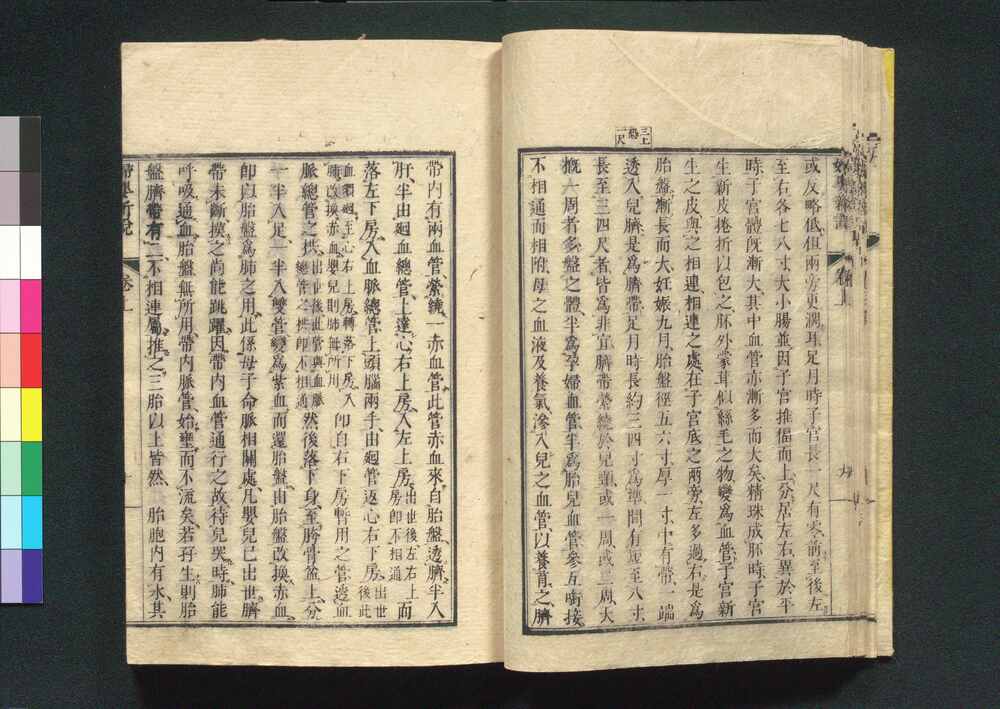 或反略低但兩旁更濶耳足月時子宮長一尺有零前至後左
至右各七八寸大小腸並因子宮推偪而上分居左右異於平
時子宮體既漸大其中血管亦漸多而大矣精珠成胚時子宮
生新皮捲折以包之胚外蒙茸似絲毛之物變為血管子宮新
生之皮與之相連相連之處在子宮底之兩旁左多過右是為
胎盤漸長而大妊娠九月胎盤徑五六寸厚一寸中有帶一端
透入兒臍是為臍帶足月時長約三四寸為準間有短至八寸
長至三四尺者皆為非宜臍帶縈繞於兒頸或一周或三周大
概一周者多盤之體半為孕婦血管半為胎兒血管參互啣接
不相通而相附母之血液及養氣滲入兒之血管以養育之臍
帶內有兩血管縈繞一赤血管此管赤血來自胎盤透臍半入
肝半由廻血總管上達心右上房入左上房出世後左右上房即不相通而
落左下房入血脈總管上頭腦兩手由廻管返心右下房出世後此
血須廻至心右上房轉落下房入肺改換赤血嬰兒則肺無所用即自右下房暫用之管透血
脈總管之拱出世後此管與血脈總管之拱即不相通然後落下身至胯骨盆上分
一半入足一半入雙管變為紫血而還胎盤由胎盤改換赤血
即以胎盤為肺之用此係母子命脈相關處凡嬰兒已出世臍
帶未斷摸之尚能跳躍因帶內血管通行之故待兒哭時肺能
呼吸通血胎盤無所用帶內脈管始壅而不流矣若孖生則胎
盤臍帶有二不相連屬推之三胎以上皆然 胎胞內有水其